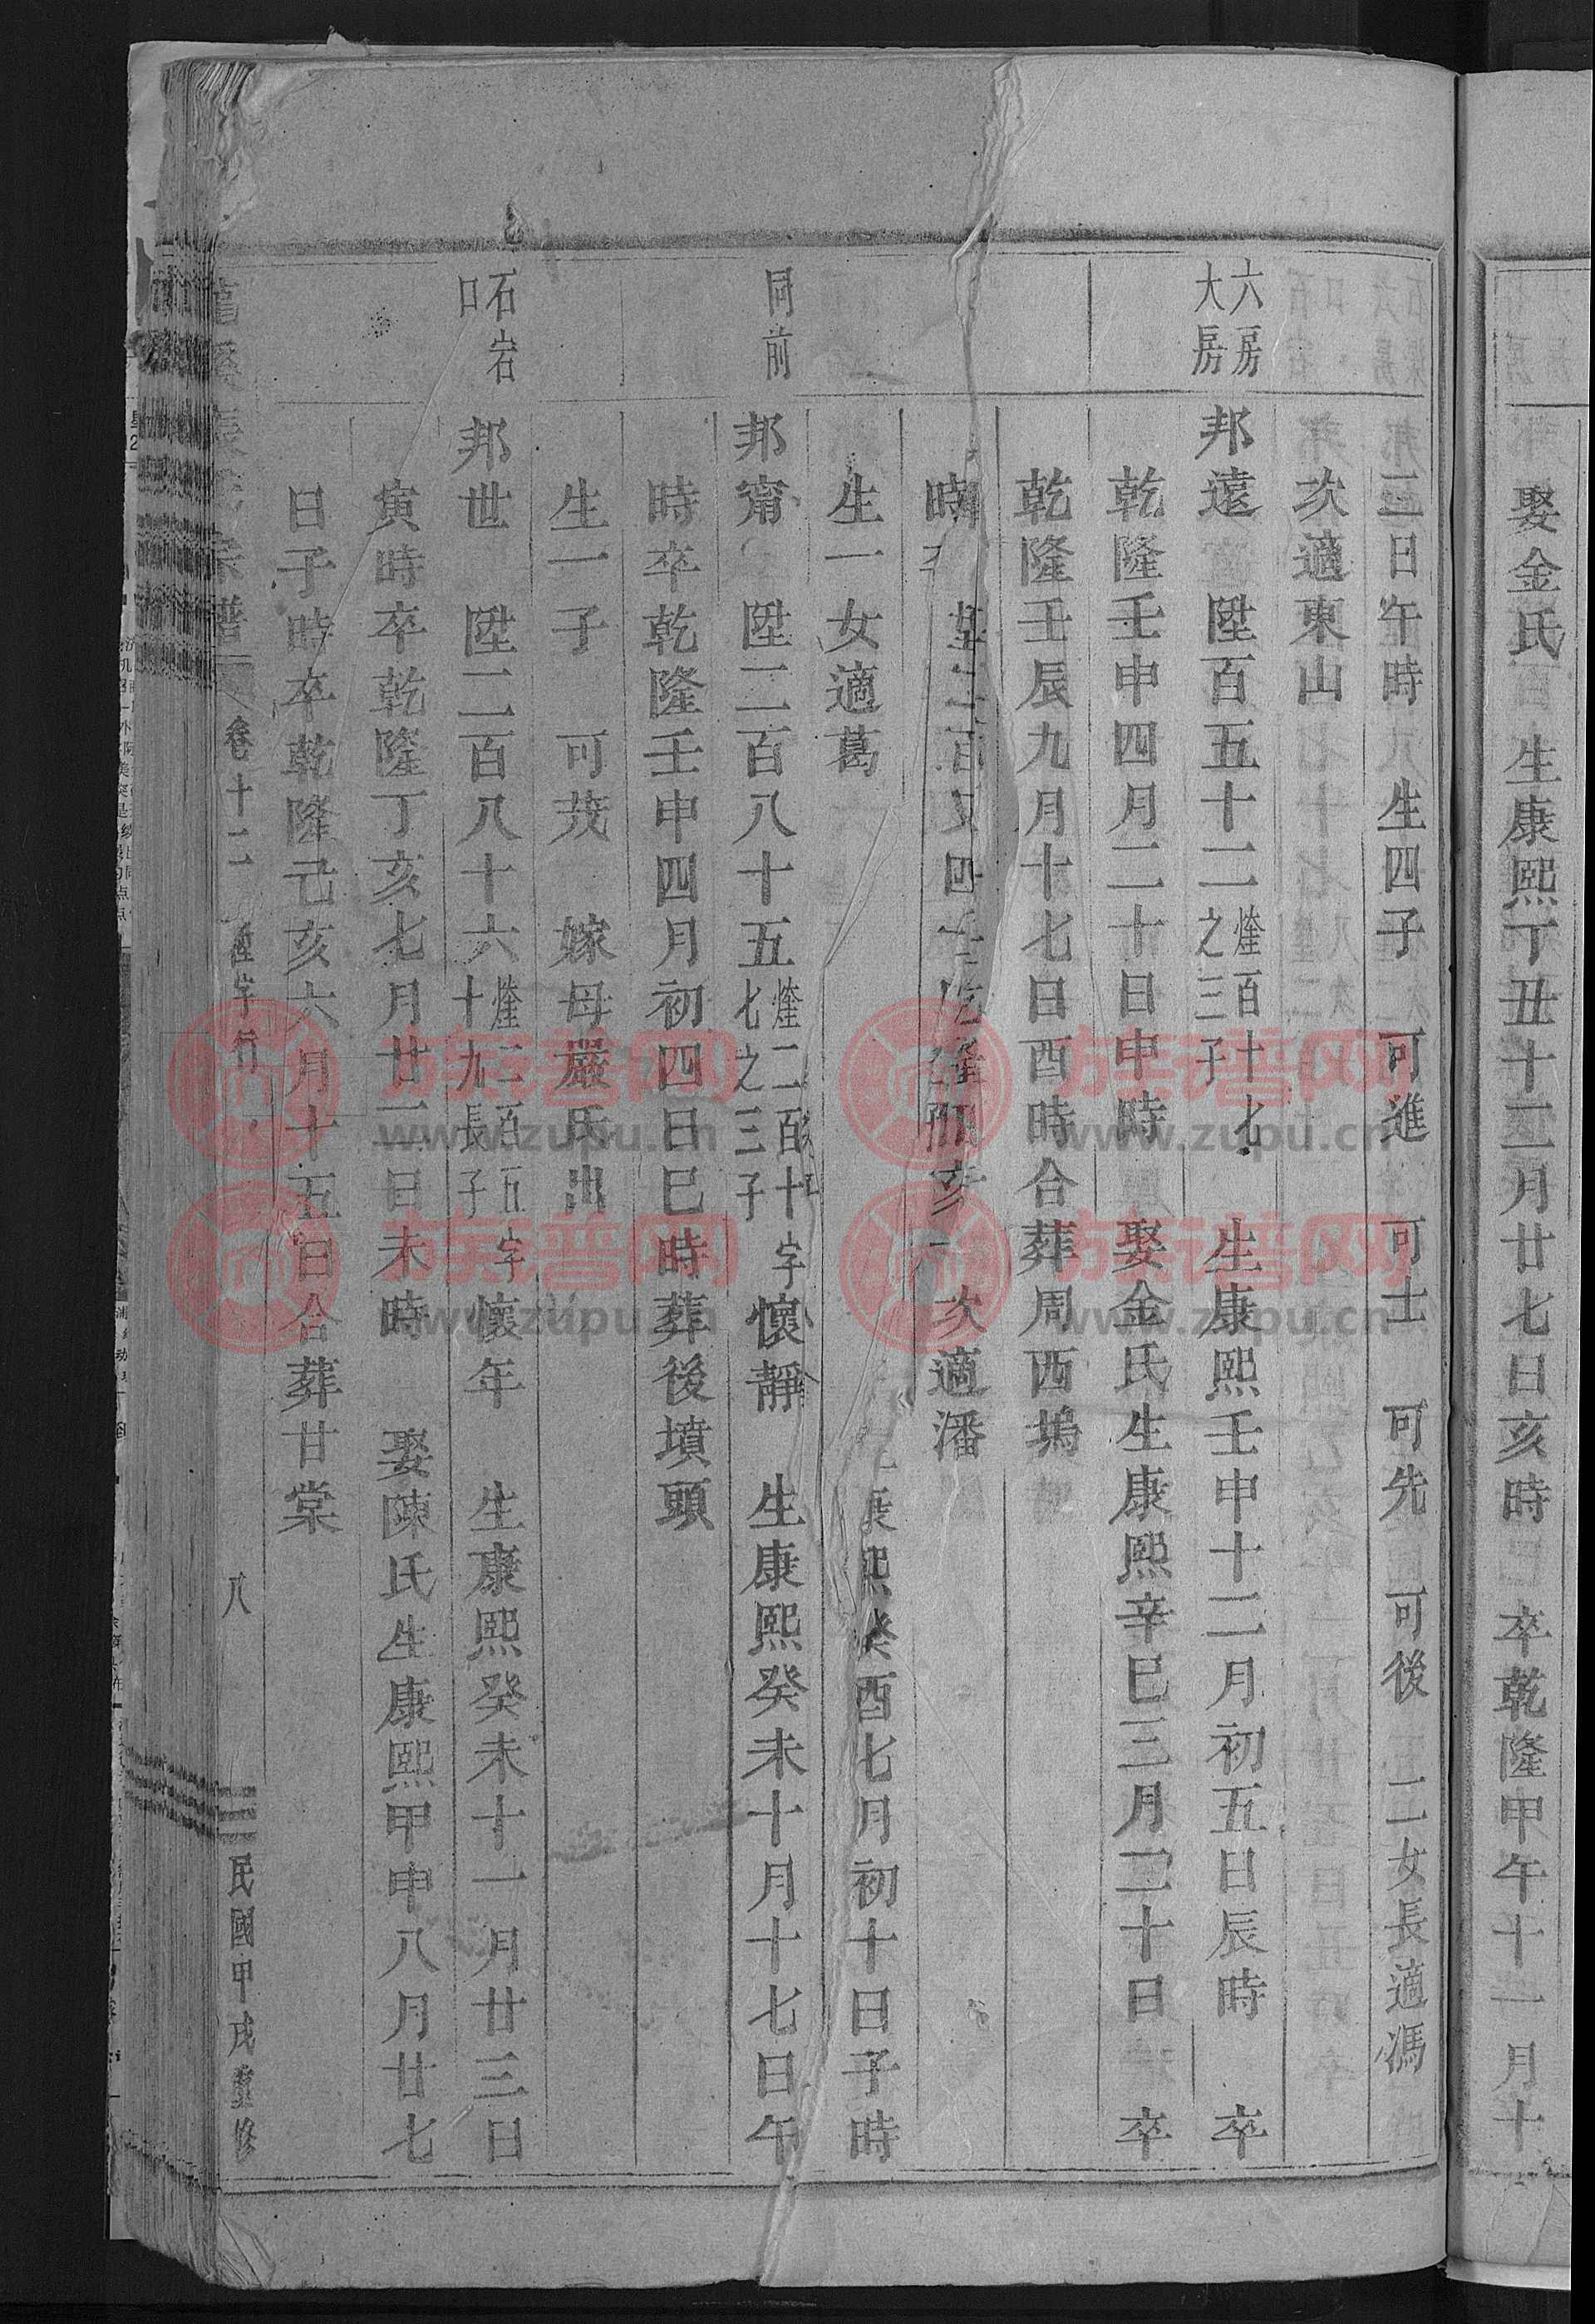 娶金氏 生康熙丁丑十二月廿七日亥時 卒乾隆甲午十一月十
二日午時 生四子 可進 可士 可先 可後 二女長適馮
次適東山
六房
大房
邦遠 陞百五十二 煃百十七之三子 生康熙壬申十二月初五日辰時 卒
乾隆壬申四月二十日申時 娶金氏生康熙辛巳三月二十日 卒
乾隆壬辰九月十七日酉時合葬周西塢
次適潘
生一女適葛
康熙癸酉七月初十日子時
同前
邦甯 陞二百八十五 煃二百十七之三子 字懷靜 生康熙癸未十月十七日午
時卒乾隆壬申四月初四日巳時葬後墳頭
生一子 可茂 嫁母嚴氏出
石岩
口
邦世 陞二百八十六 煃二百五十九長子 字懷年 生康熙癸未十一月廿三日
寅時卒乾隆丁亥七月廿二日未時 娶陳氏生康熙甲申八月廿七
日子時卒乾隆己亥六月十五日合葬甘棠
宗譜 卷十二 陞字行 八 民國甲戌重修
族谱网
www.zupu.cn
族谱网
www.zupu.cn
族谱网
www.zupu.cn
族谱网
www.zupu.cn